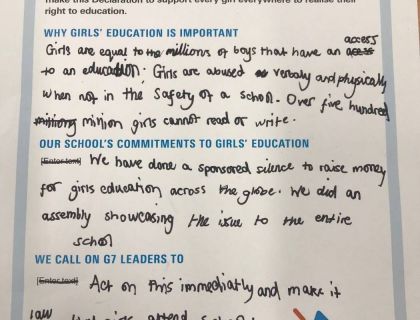 make this Declaration to support every girl everywhere to realise their
right to education.
WHY GIRLS' EDUCATION IS IMPORTANT
access
Girls are equal to the millions of boys that have an access
to an education. Girls are abused verbaly and physically
when not in the safety of a school. Over five hundred
million girls cannot read or write.
OUR SCHOOL'S COMMITMENTS TO GIRLS' EDUCATION
[Enter text] We have done a sponsored silence to raise money
for girls education across the globe. We did an
assembly showcasing the issue to the entire
school
WE CALL ON G7 LEADERS TO
[Enter text] Act on this immediatly and make it
law